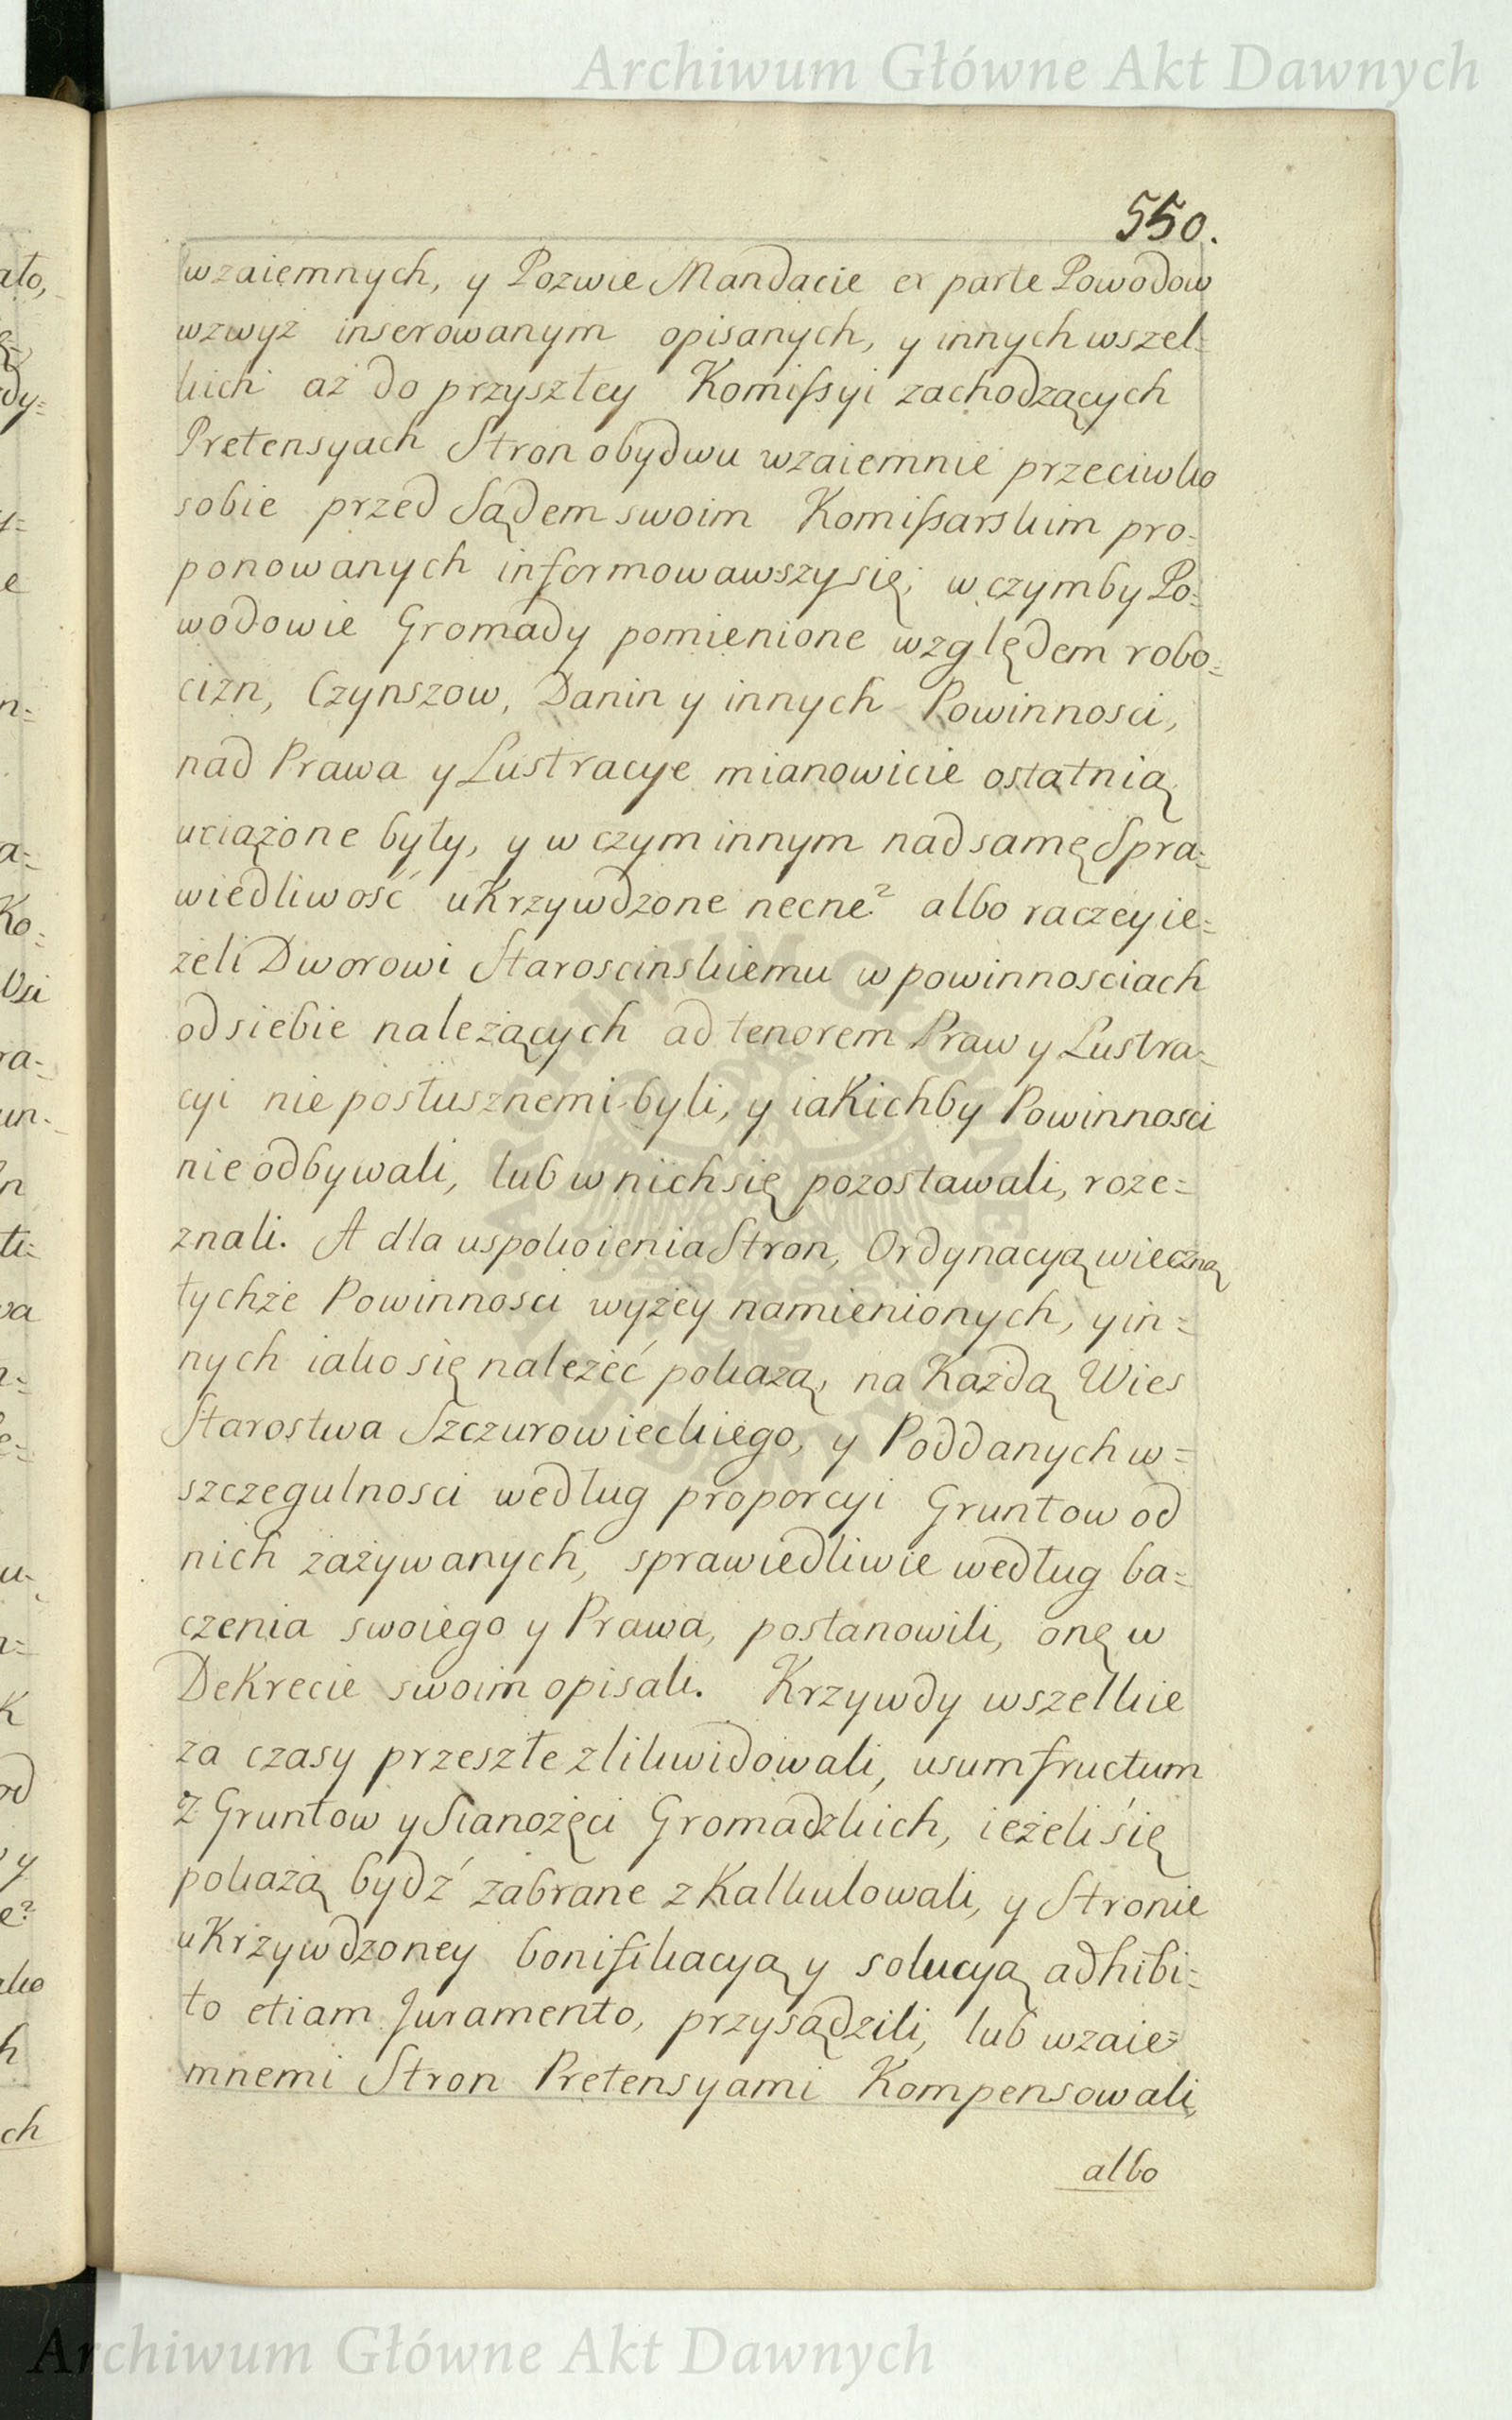 Archiwum Główne Akt Dawnych
550.
wzaiemnych, y Pozwie Mandacie ex parte Powodow
wzwyż inserowanym opisanych, y innych wszel=
kich aż do przyszłey Komissyi zachodzących
Pretensyach Stron obydwu wzaiemnie przeciwko
sobie przed Sądem swoim Komissarskim pro=
ponowanych informowawszy się, w czymby Po=
wodowie Gromady pomienione względem robo=
cizn, Czynszow, Danin y innych Powinnosci,
nad Prawa y Lustracye mianowicie ostatnią
uciążone były, y w czym innym nad samę Spra=
wiedliwość uKrzywdzone necne? albo raczey ie=
żeli Dworowi Staroscinskiemu w powinnosciach
od siebie należących ad tenorem Praw y Lustra=
cyi nie posłusznemi byli, y iaKichby Powinnosci
nie odbywali, lub w nich się pozostawali, roze=
znali. A dla uspokoienia Stron, Ordynacyą wieczną
tychże Powinnosci wyżey namienionych, y in=
nych iako się należéć pokażą, na Każdą Wies
Starostwa Szczurowieckiego, y Poddanych w=
szczegulnosci według proporcyi Gruntow od
nich zażywanych, sprawiedliwie według ba=
czenia swoiego y Prawa, postanowili, onę w
DeKrecie swoim opisali. Krzywdy wszelkie
za czasy przeszłe zlikwidowali, usumfructum
z Gruntow y Sianożęci Gromadzkich, ieżeli się
pokażą bydź zabrane zKalkulowali, y Stronie
uKrzywdzoney bonifikacyą y solucyą adhibi=
to etiam Juramento, przysądzili, lub wzaie=
mnemi Stron Pretensyami Kompensowali,
albo
Archiwum Główne Akt Dawnych